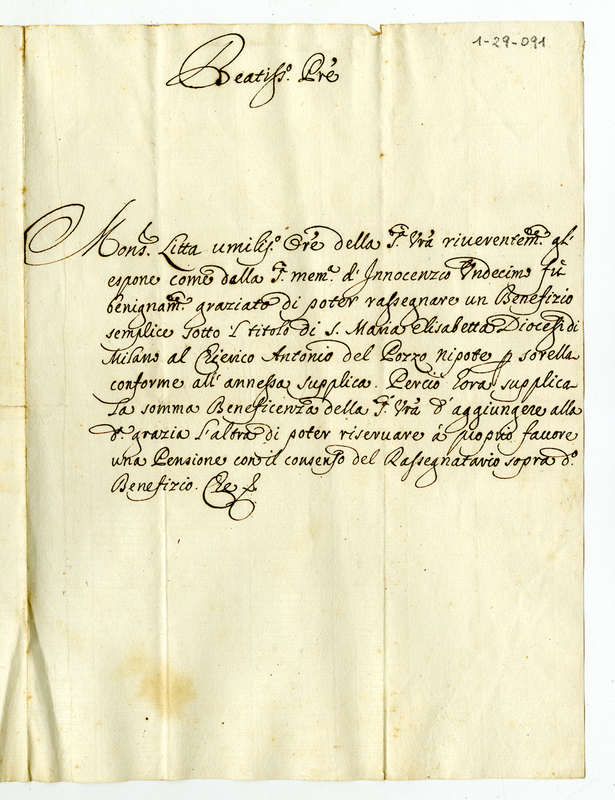 1-29-091
Beatiss.º Prê
Mons.r Litta umilis.º Orê della S.tà Vrâ riverentem.te gl'
espone come dalla S. mem.a d'Innocenzio Undecimo fù
benignam.te graziato di poter rassegnare un Benefizio
semplice sotto 'l titolo di S. Maria Elisabetta Diocesi di
Milano al Clierico Antonio del Pozzo nipote p sorella
conforme all'annessa supplica. Perciò hora supplica
la somma Beneficenza della S.tà Vrâ d'aggiungere alla
d.a grazia l'altra di poter riservare à proprio favore
una Pensione con il consenso del Rassegnatario sopra d.º
Benefizio. Che &.